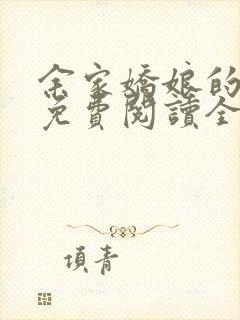 余家嬌娘的
免費閱讀全
項青